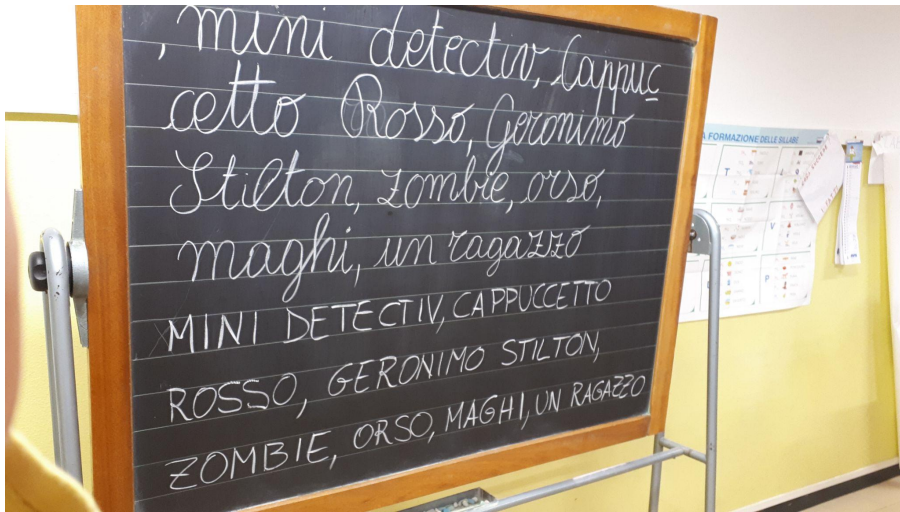 , mini detectiv, Cappuc
cetto Rosso, Geronimo
Stilton, zombie, orso,
maghi, un ragazzo
MINI DETECTIV, CAPPUCCETTO
ROSSO, GERONIMO STILTON,
ZOMBIE, ORSO, MAGHI, UN RAGAZZO
A FORMAZIONE DELLE SILLABE
T
V
P